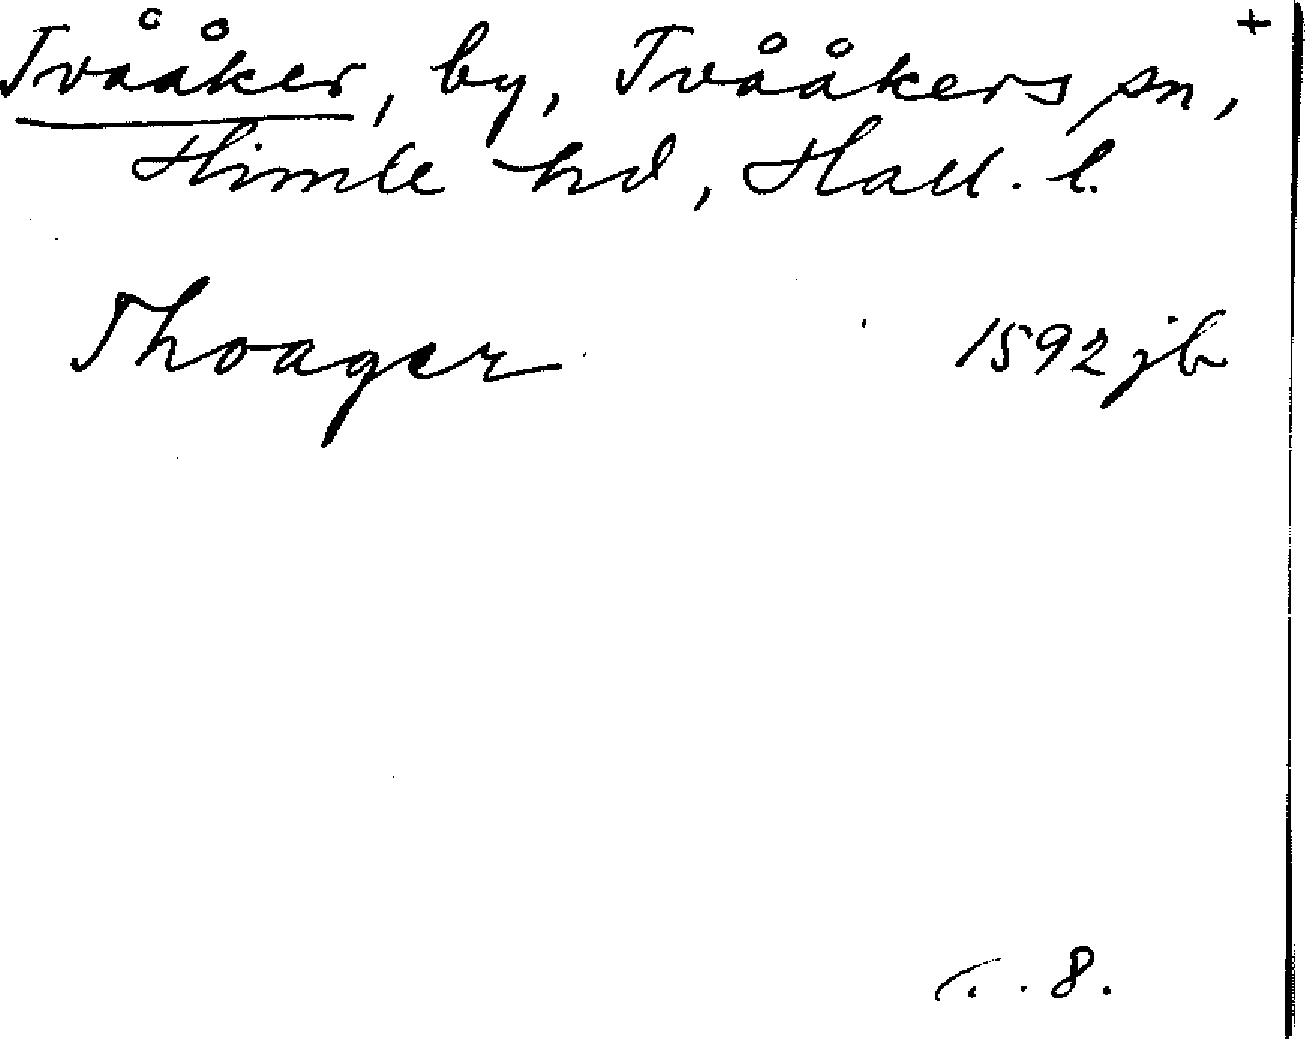 +
Tvååker, by, Tvååkers sn,
Himle hd, Hall. l.
Thoager 1592 jb
8.